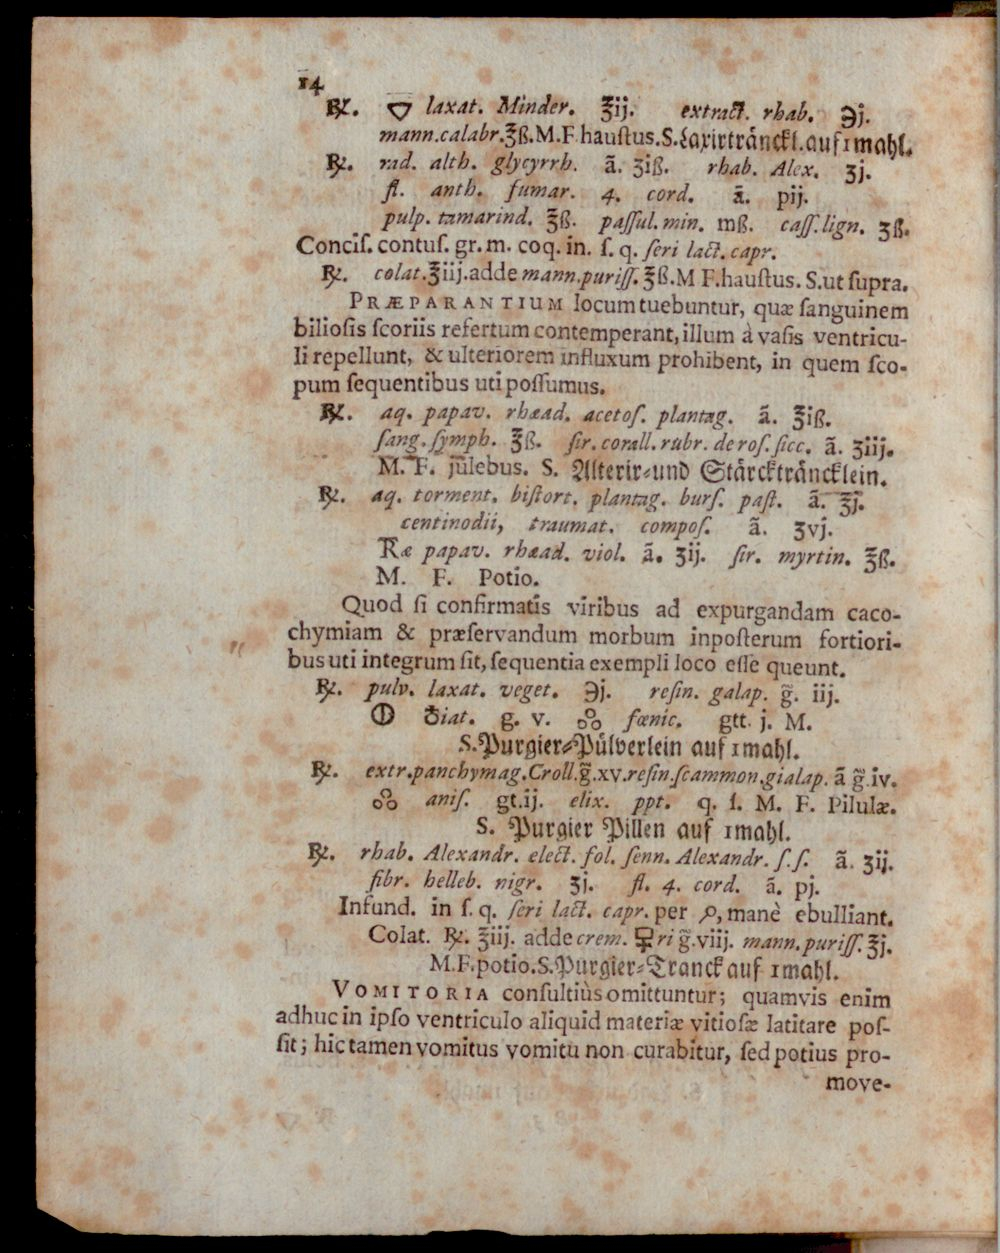 14
℞. 🜄 laxat. Minder. ℥ij. extract. rhab. ℈j.
mann. calabr. ℥ß. M. F. hauſtus. S. Laxirtränckl. auf 1 mahl.
℞. rad. alth. glycyrrh. ã. ʒiß. rhab. Alex. ʒj.
fl. anth. fumar. 4. cord. ã. pij.
pulp. tamarind. ℥ß. paſſul. min. mß. caſſ. lign. ʒß.
Conciſ. contuſ. gr. m. coq. in. ſ. q. ſeri lact. capr.
℞. colat. ℥iij. adde mann. puriſſ. ℥ß. M F. hauſtus. S. ut ſupra.
PRÆPARANTIUM locum tuebuntur, quæ ſanguinem
bilioſis ſcoriis refertum contemperant, illum à vaſis ventricu-
li repellunt, & ulteriorem influxum prohibent, in quem ſco-
pum ſequentibus uti poſſumus.
℞. aq. papav. rhæad. acetoſ. plantag. ã. ℥iß.
ſang. ſymph. ℥ß. ſir. corall. rubr. de roſ. ſicc. ã. ʒiij.
M. F. julebus. S. Alterir-und Stärckträncklein.
℞. aq. torment. biſtort. plantag. burſ. paſt. ã. ℥j.
centinodii, traumat. compoſ. ã. ʒvj.
℞æ papav. rhæad. viol. ã. ʒij. ſir. myrtin. ℥ß.
M. F. Potio.
Quod ſi confirmatis viribus ad expurgandam caco-
chymiam & præſervandum morbum inpoſterum fortiori-
bus uti integrum ſit, ſequentia exempli loco eſſe queunt.
℞. pulv. laxat. veget. ℈j. reſin. galap. g̃. iij.
🜕 ♁iat. g. v. ஃ fœnic. gtt. j. M.
S. Purgier-Pülverlein auf 1 mahl.
℞. extr. panchymag. Croll. g̃. xv. reſin. ſcammon. gialap. ã g̃. iv.
ஃ aniſ. gt. ij. elix. ppt. q. ſ. M. F. Pilulæ.
S. Purgier Pillen auf 1 mahl.
℞. rhab. Alexandr. elect. fol. ſenn. Alexandr. ſ. ſ. ã. ʒij.
fibr. helleb. nigr. ʒj. fl. 4. cord. ã. pj.
Infund. in ſ. q. ſeri lact. capr. per noctem, manè ebulliant.
Colat. ℞. ℥iij. adde crem. 🜿ri g̃. viij. mann. puriſſ. ℥j.
M. F. potio. S. Purgier-Tranck auf 1 mahl.
VOMITORIA conſultiùs omittuntur; quamvis enim
adhuc in ipſo ventriculo aliquid materiæ vitioſæ latitare poſ-
ſit; hic tamen vomitus vomitu non curabitur, ſed potius pro-
move-